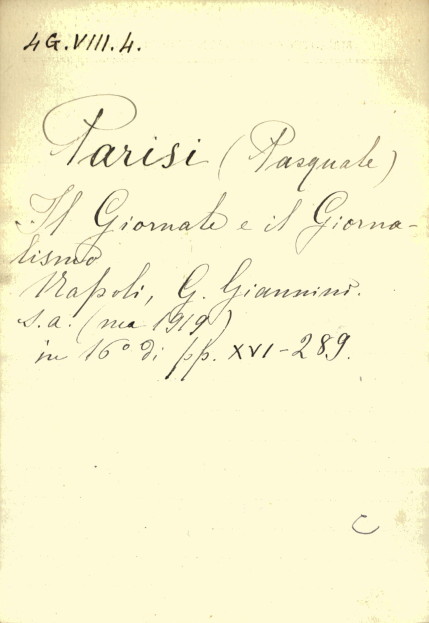 4G.VIII.4.
Parisi (Pasquale)
Il Giornale e il Giorna-
lismo
Napoli, G. Giannini.
s.a. (ma 1919)
in 16° di pp. XVI-289.
C